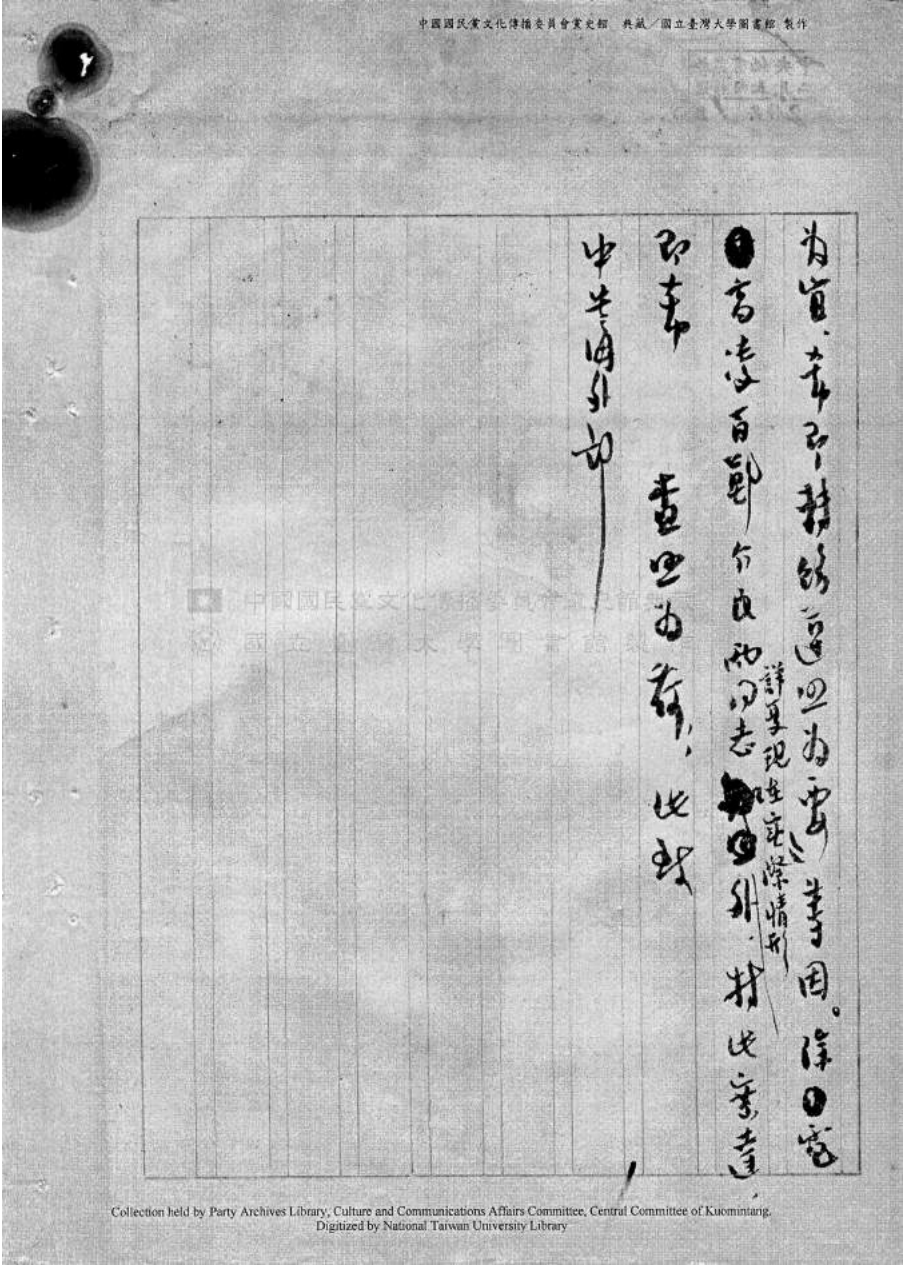 中國國民黨文化傳播委員會黨史館 典藏／國立臺灣大學圖書館 製作
为宜、希即轉飭遵照为要」等因。除電
高凌百鄭介民兩同志詳复現在实際情形外，特此密達，
即希 查照为荷，此致
中共海外部
中國國民黨文化傳播委員會黨史館典藏
國立臺灣大學圖書館製作
Collection held by Party Archives Library, Culture and Communications Affairs Committee, Central Committee of Kuomintang.
Digitized by National Taiwan University Library